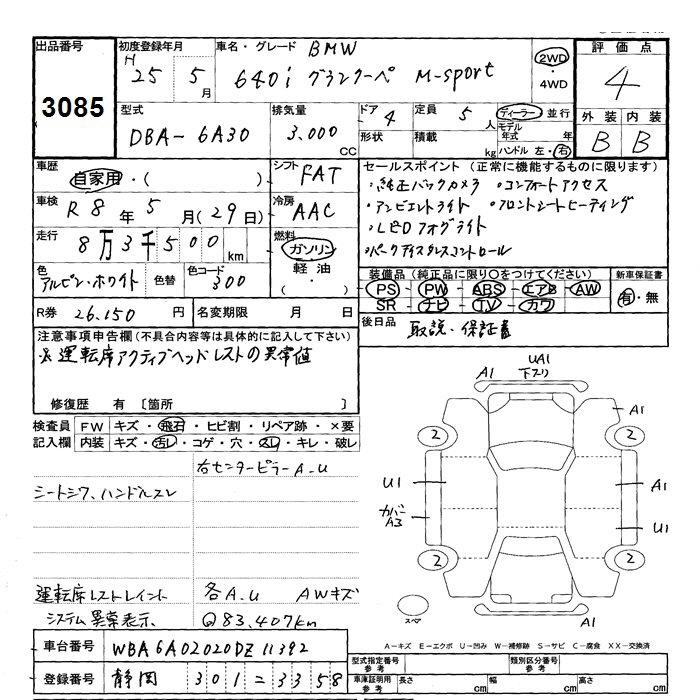 出品番号
3085
初度登録年月
H 25年 5月
車名・グレード BMW
640i グランクーペ M-sport
2WD
・4WD
評価点
4
外装 内装
B B
型式
DBA-6A30
排気量
3.000 CC
ドア 4
形状
定員 5人
積載 kg
ディーラー・並行
モデル年式 年
ハンドル 左・右
車歴
自家用・( )
シフト FAT
車検 R8年 5月(29日)
冷房 AAC
走行 8万3千500km
燃料 ガソリン
軽油
・( )
色 アルピン・ホワイト
色替
色コード 300
R券 26.150円
名変期限 月 日
セールスポイント(正常に機能するものに限ります)
・純正バックカメラ ・コンフォートアクセス
・アンビエントライト ・フロントシートヒーティング
・LEDフォグライト
・パークディスタンスコントロール
装備品(純正品に限り○をつけてください)
PS・PW・ABS・エアB・AW
SR・ナビ・TV・カワ
新車保証書
有・無
後日品 取説・保証書
注意事項申告欄(不具合内容等は具体的に記入して下さい)
※運転席アクティブヘッドレストの異常値
修復歴 有[箇所 ]
検査員記入欄
FW キズ・飛石・ヒビ割・リペア跡・×要
内装 キズ・汚レ・コゲ・穴・スレ・キレ・破レ
右センターピラーA.U
シートシワ、ハンドルスレ
運転席レストレイント
システム異常表示
各A.U AWキズ
@83,407km
UA1
下スリ
A1
A1
2
2
U1
A1
カバー
A3
U1
2
2
スペア
A1
A-キズ E-エクボ U-凹み W-補修跡 S-サビ C-腐食 XX-交換済
車台番号 WBA6A02020DZ11392
登録番号 静岡 301 = 3358
型式指定番号 参考
類別区分番号 参考
車庫証明用 参考
長さ cm 幅 cm 高さ cm